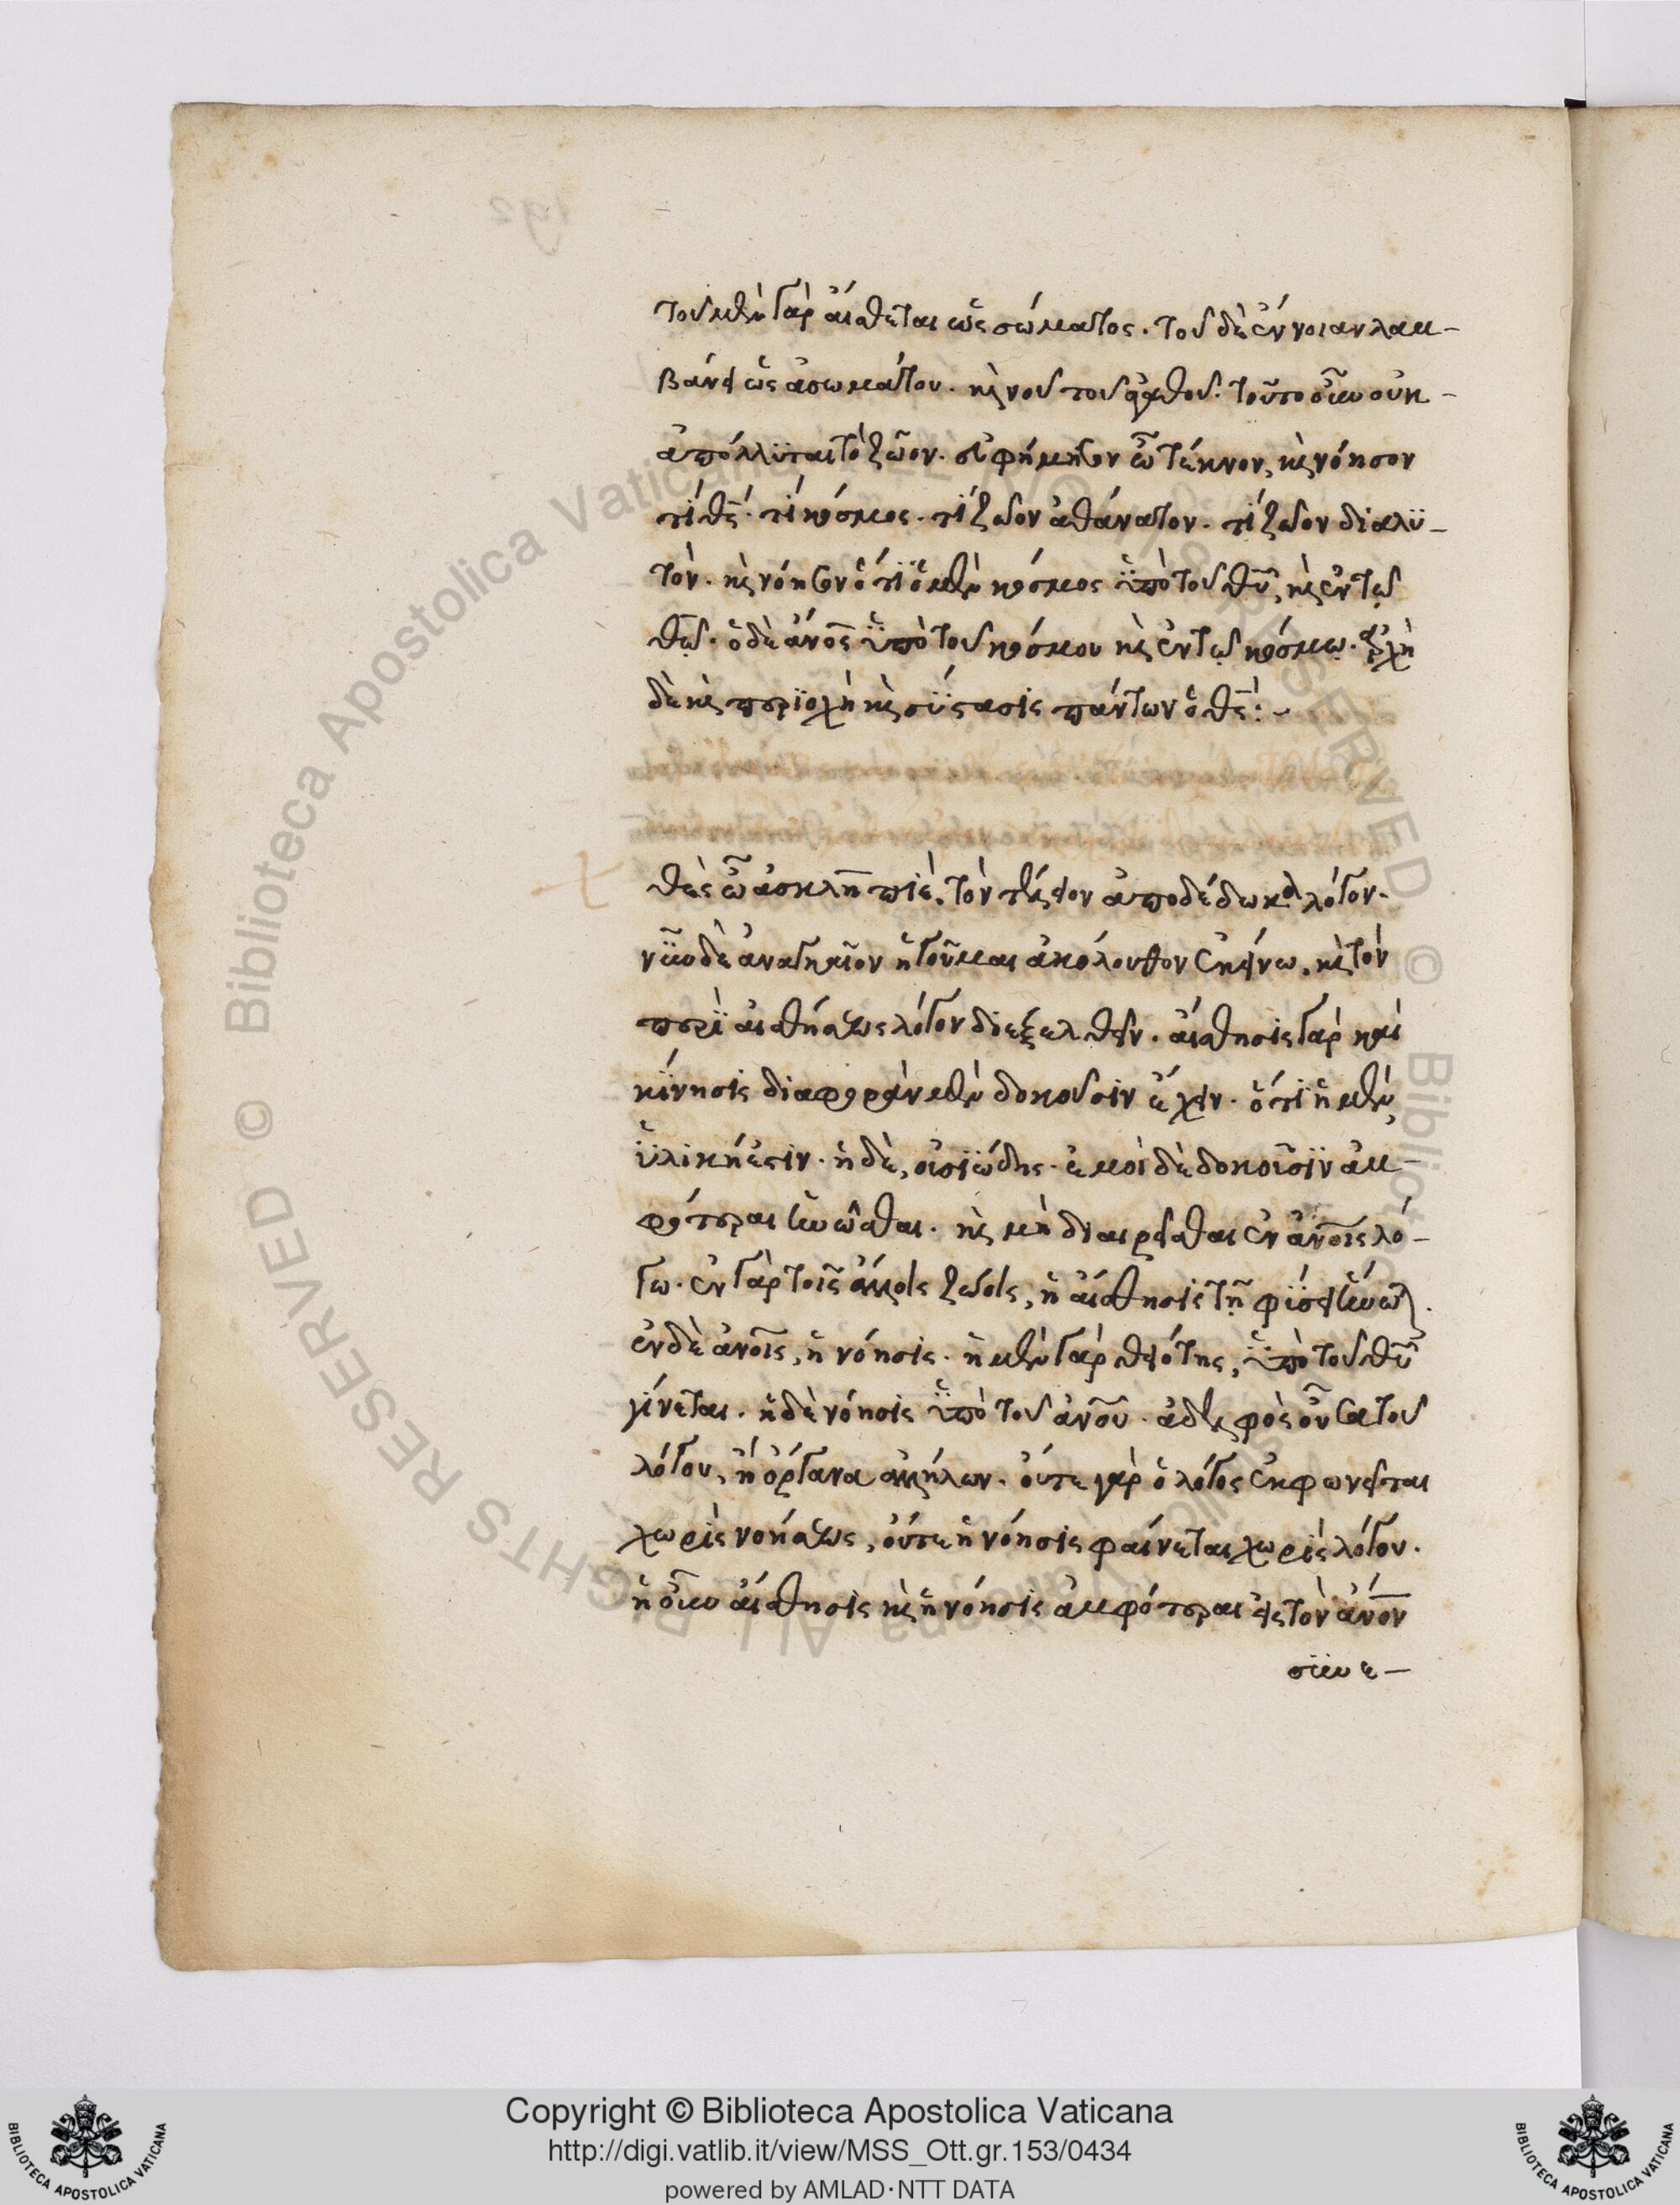 τοῦ μὲν γὰρ αἴσθεται ὡς σώματος. τοῦ δὲ ἔννοιαν λαμ-
βάνει ὡς ἀσωμάτου. καὶ νοῦ τοῦ ἀγαθοῦ. τοῦτο οὖν οὐκ-
ἀπόλλϋται τὸ ζῶον. εὐφήμησον ὦ τέκνον, καὶ νόησον
τί θς̄. τί κόσμος. τί ζῶον ἀθάνατον. τί ζῶον διαλϋ-
τόν. καὶ νόησον ὅτι ὁ μὲν κόσμος ὑπὸ τοῦ θῡ, καὶ ἐν τῷ
θῶ̄. ὁ δὲ ἄνο̄ς ὑπὸ τοῦ κόσμου καὶ ἐν τῷ κόσμῳ. ἀρχὴ
δὲ καὶ περϊοχὴ καὶ σύστασις πάντων ὁ θς̄:-
θὲς ὦ ἀσκληπιὲ, τὸν τέλειον ἀποδέδωκα λόγον.
νῦν δὲ ἀναγκαῖον ἡγοῦμαι ἀκόλουθον ἐκείνω, καὶ τὸν
περὶ αἰσθήσεως λόγον διεξελθεῖν. αἴσθησις γὰρ καὶ
κίνησις διαφορὰν μὲν δοκοῦσιν ἔχειν. ὅτι ἡ μὲν,
ὑλικὴ ἐστιν. ἡ δὲ, οὐσϊώδης. ἐμοὶ δὲ δοκοῦσϊν ἀμ-
φότεραι ἡνῶσθαι. καὶ μὴ διαιρεῖσθαι ἐν ἀνοῑς λό-
γω. ἐν γὰρ τοῖς ἄλλοις ζώοις, ἡ αἴσθησις τῇ φύσει ἥνωται.
ἐν δὲ ἀνοῑς, ἡ νόησις. ἡ μὲν γὰρ θειότης, ὑπὸ τοῦ θῡ
γίνεται. ἡ δὲ νόησις ὑπὸ τοῦ ἀνοῡ. ἀδελφὸς οὖσα τοῦ
λόγου, ἢ ὄργανα ἀλλήλων. οὔτε γὰρ ὁ λόγος ἐκφωνεῖται
χωρὶς νοήσεως, οὔτε ἡ νόησις φαίνεται χωρὶς λόγου.
ἡ οὖν αἴσθησις καὶ ἡ νόησις ἀμφότεραι εἰς τὸν ἄνο̄ν
σϋνε-
Copyright © Biblioteca Apostolica Vaticana
http://digi.vatlib.it/view/MSS_Ott.gr.153/0434
powered by AMLAD·NTT DATA
BIBLIOTECA APOSTOLICA VATICANA
BIBLIOTECA APOSTOLICA VATICANA